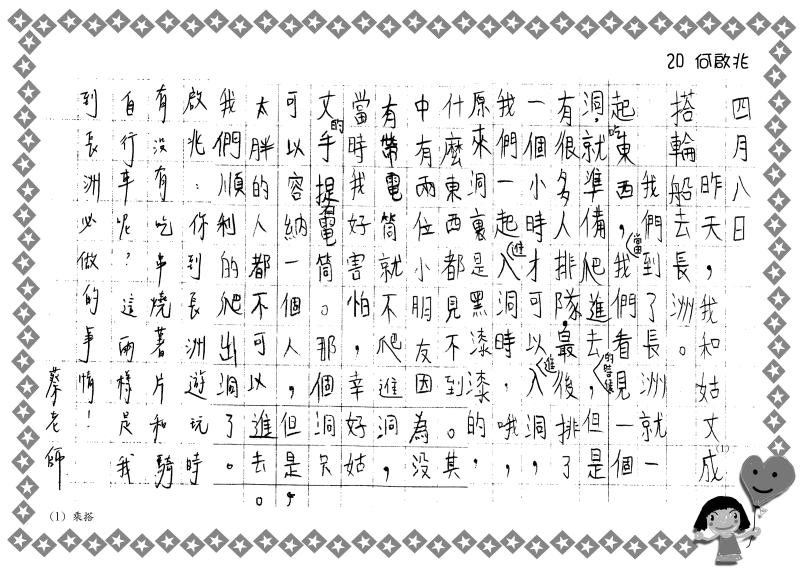 20 何啟兆
四月八日
昨天，我和姑丈成(1)
搭輪船去長洲。
我們到了長洲就一
起吃東西，當我們看見一個
洞，就準備爬進去的時候，但是
有很多人排隊，最後，排了
一個小時才可以進入洞，
我們一起進入洞時，哦，
原來洞裏是黑漆漆的，
什麼東西都見不到。其
中有兩位小朋友因為沒
有帶電筒就不爬進洞，
當時我好害怕，幸好姑
丈的手提電筒。那個洞只
可以容納一個人，但是，
太胖的人都不可以進去。
我們順利的爬出洞了。
啟兆：你到長洲遊玩時
有沒有吃串燒薯片和騎
自行車呢？這兩樣是我
到長洲必做的事情！
蔡老師
(1) 乘搭